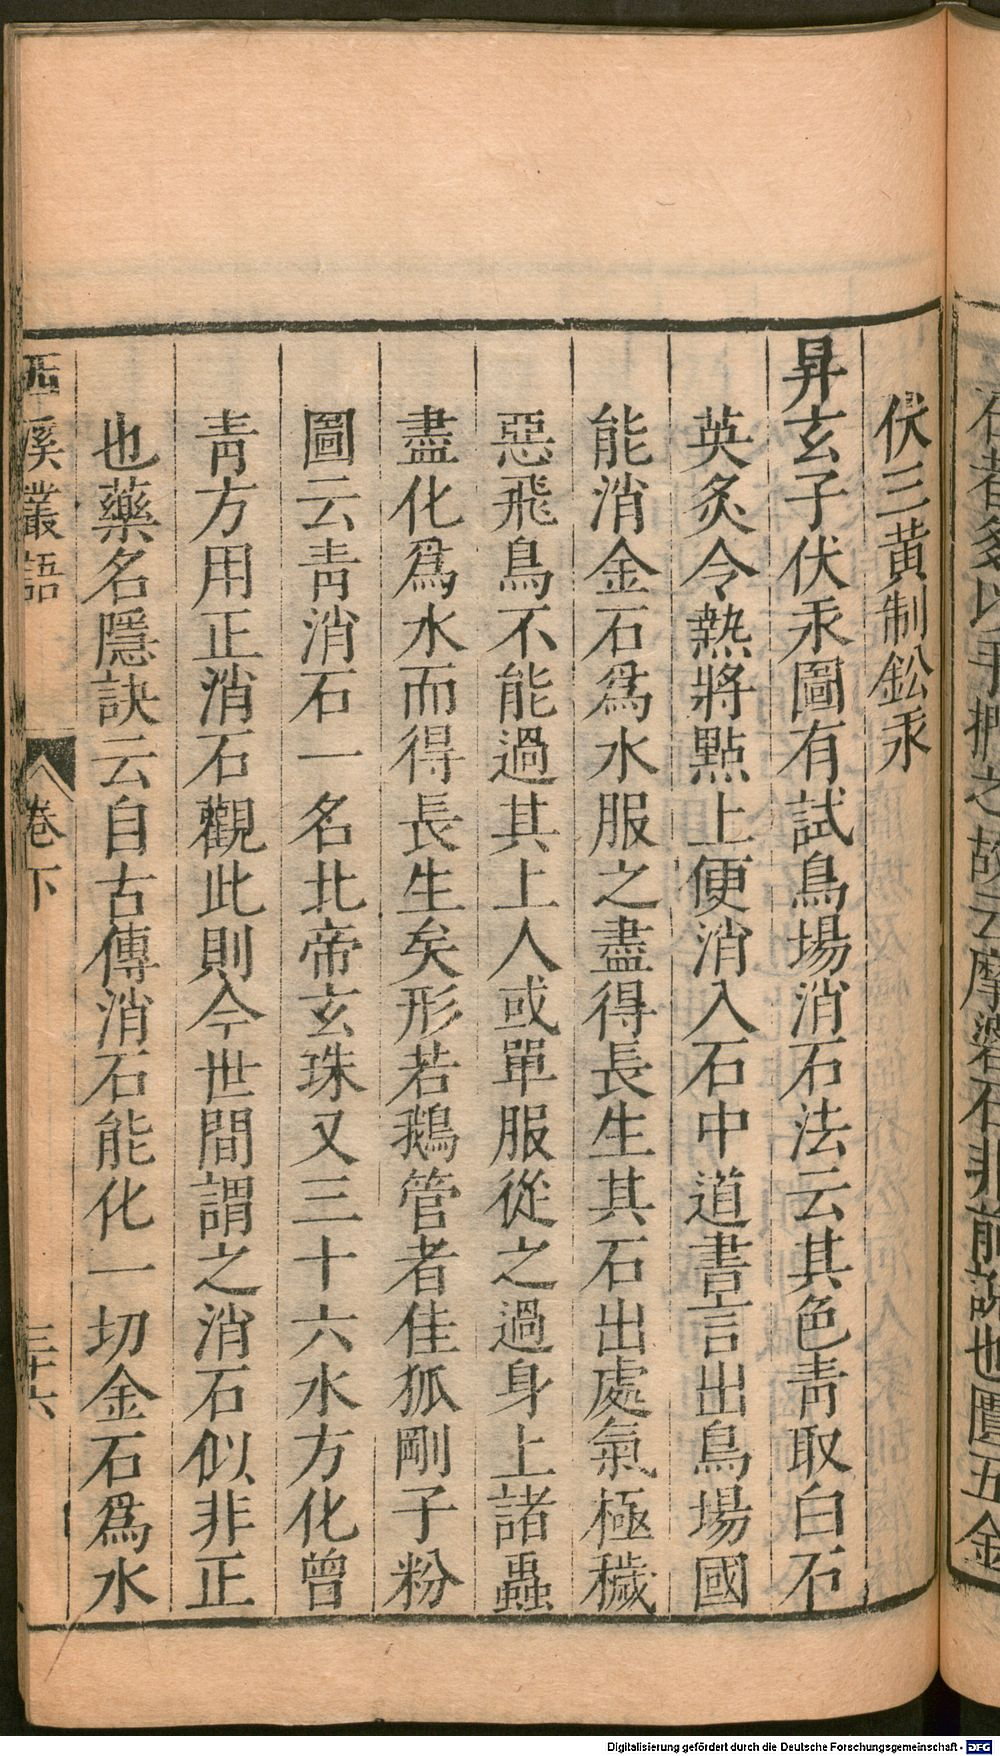 石者多以手之故云摩石非前說也匱五金
伏三黃制鈆汞
昇玄子伏汞圖有試烏場消石法云其色靑取白石
英炙令熱將點上便消入石中道書言出烏場國
能消金石爲水服之盡得長生其石出處氣極穢
惡飛鳥不能過其上人或單服從之過身上諸蟲
盡化爲水而得長生矣形若鵝管者佳狐剛子粉
圖云靑消石一名北帝玄珠又三十六水方化曾
靑方用正消石觀此則今世間謂之消石似非正
也藥名隱訣云自古傳消石能化一切金石爲水
西溪叢語
卷下
三十六
Digitalisierung gefördert durch die Deutsche Forschungsgemeinschaft - DFG